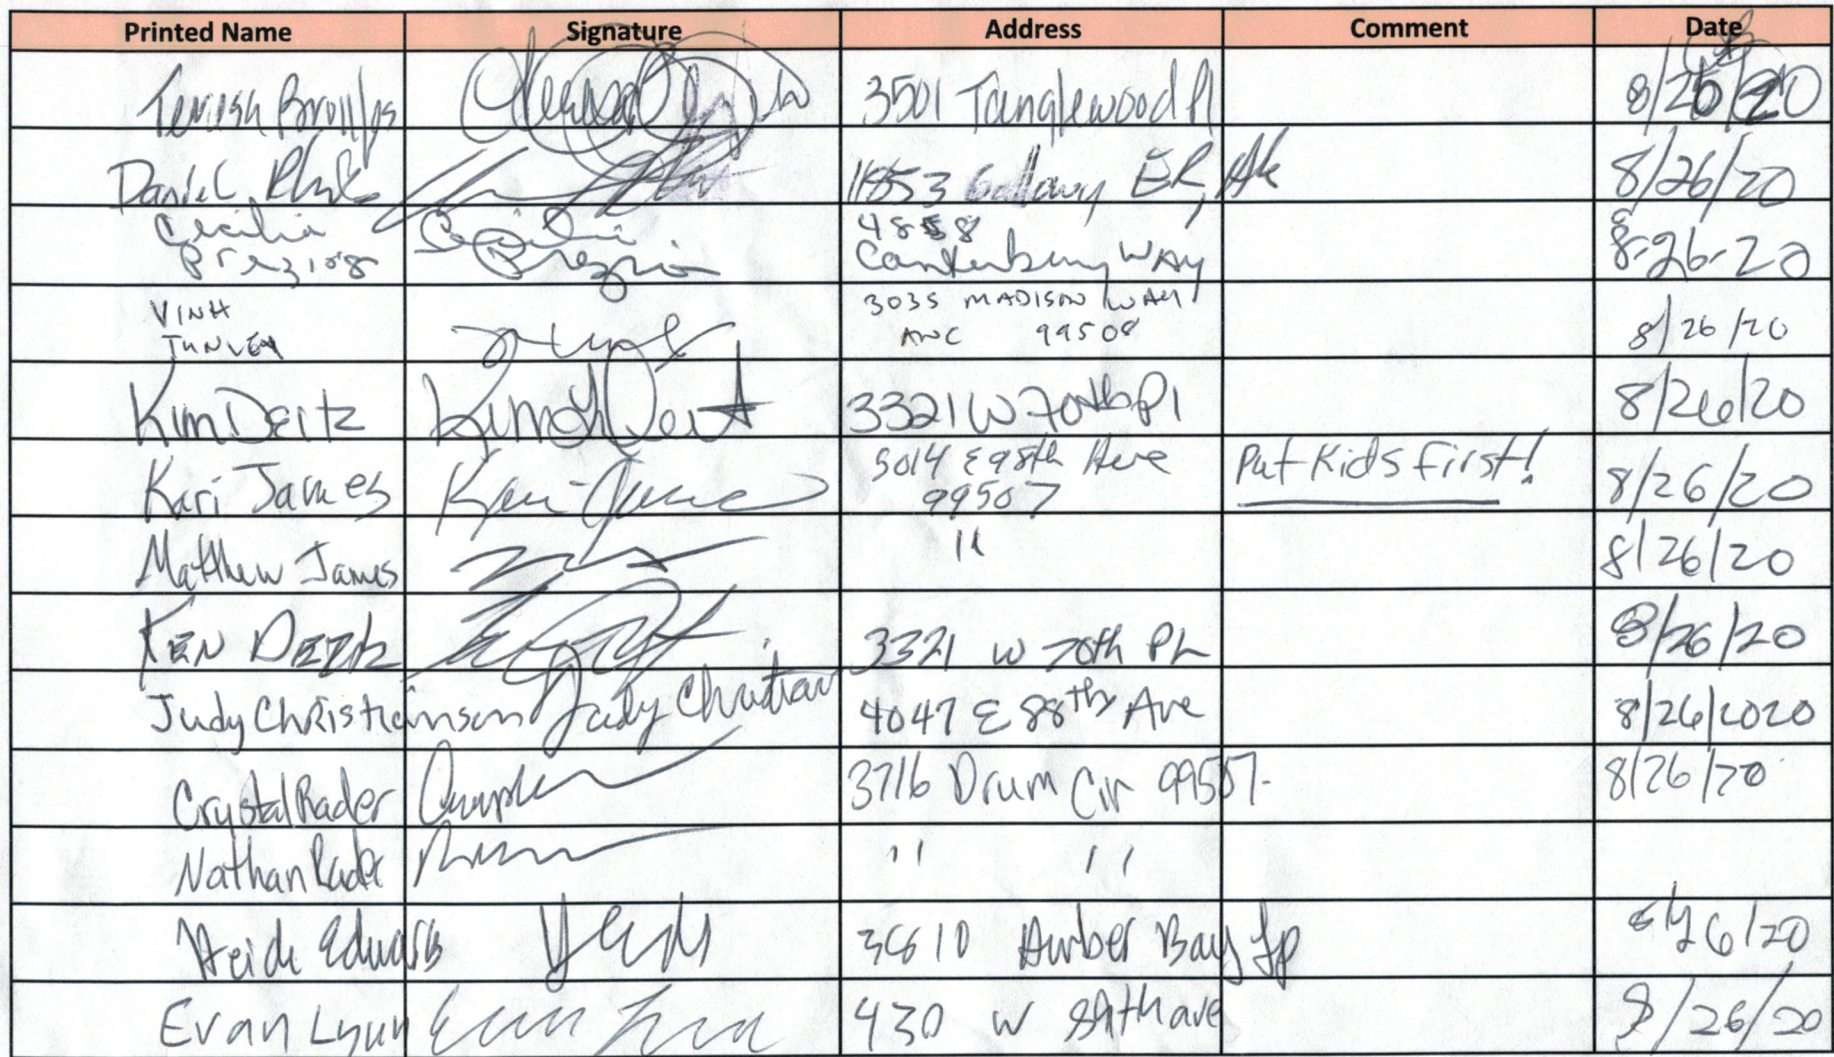 Printed Name Signature Address Comment Date
3501 Tanglewood Pl 8/26/20
Daniel 11853 Galloway ER, AK 8/26/20
Cecilia 4858
Canterbury Way 8-26-20
VINH 3035 MADISON WAY
ANC 99508 8/26/20
Kim Deitz 3321 W 70th Pl 8/26/20
Kari James Kari James 3014 E 98th Ave Put Kids First! 8/26/20
99507
Matthew James " 8/26/20
KEN DEITZ 3321 W 70th PL 8/26/20
Judy Christianson Judy Christian 4047 E 88th Ave 8/26/2020
Crystal Rader 3716 Drum Cir 99507 8/26/20
Nathan Rader " "
Heidi Edwards Amber Bay Lp 8/26/20
Evan Lynn 430 W 89th ave 8/26/20